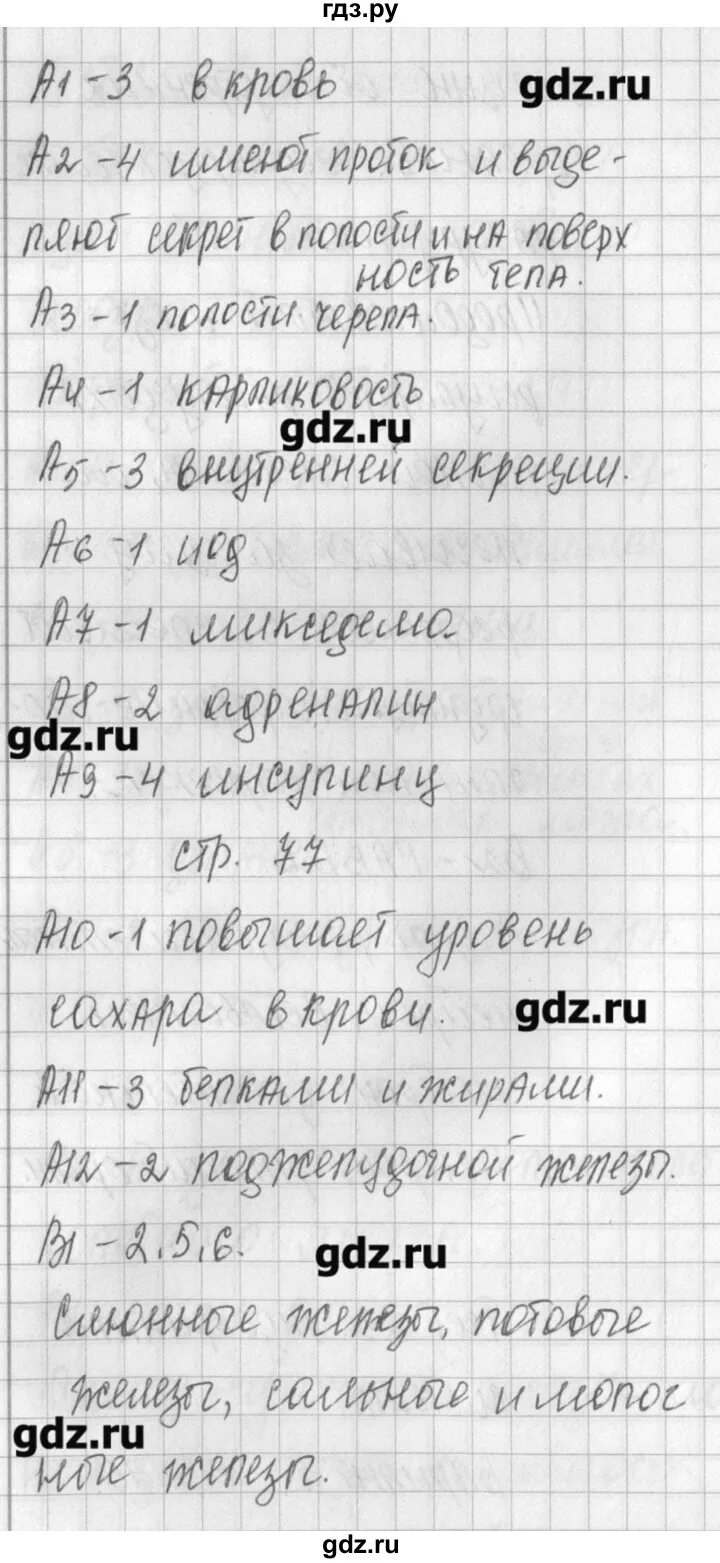 гдз.ру
А1 – 3 в кровь
gdz.ru
А2 – 4 имеют проток и выде-
ляют секрет в полости и на поверх
ность тела.
А3 – 1 полости черепа.
А4 – 1 карликовость
gdz.ru
А5 – 3 внутренней секреции.
А6 – 1 иод
А7 – 1 микседема
А8 – 2 адреналин
gdz.ru
А9 – 4 инсулину
стр. 77
А10 – 1 повышает уровень
сахара в крови.
gdz.ru
А11 – 3 белками и жирами.
А12 – 2 поджелудочной железы.
В1 – 2.5.6.
gdz.ru
Слюнные железы, потовые
железы, сальные и молоч
gdz.ru
ные железы.
gdz.ru